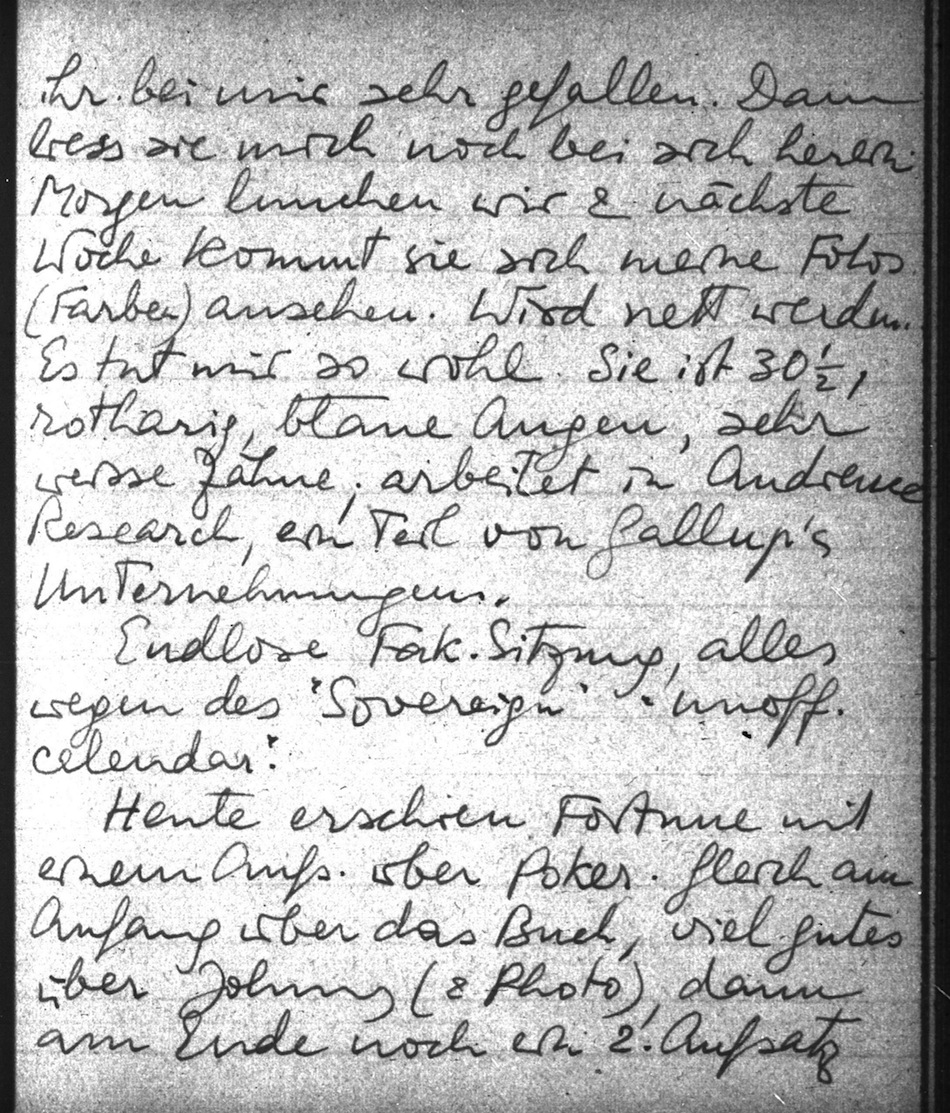 ihr bei mir sehr gefallen. Dann
liess sie mich noch bei sich herein.
Morgen lunchen wir & nächste
Woche kommt sie sich meine Fotos
(Farben) ansehen. Wird nett werden.
Es tut mir so wohl. Sie ist 30½,
rotharig, blaue Augen, sehr
weisse Zähne, arbeitet in Audience
Research, ein Teil von Gallup's
Unternehmungen.
Endlose Fak. Sitzung, alles
wegen des "Sovereign" - "unoff.
calendar".
Heute erschien Fortune mit
einem Aufs. über Poker. Gleich am
Anfang über das Buch, viel gutes
über Johnny (& Photo), dann
am Ende noch ein 2. Aufsatz